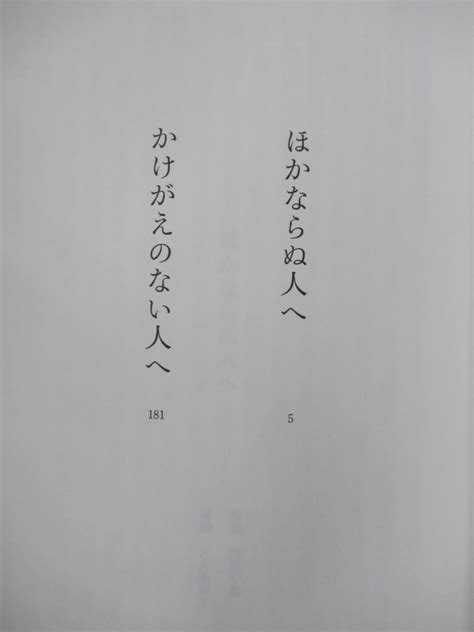 ほかならぬ人へ
5
かけがえのない人へ
181